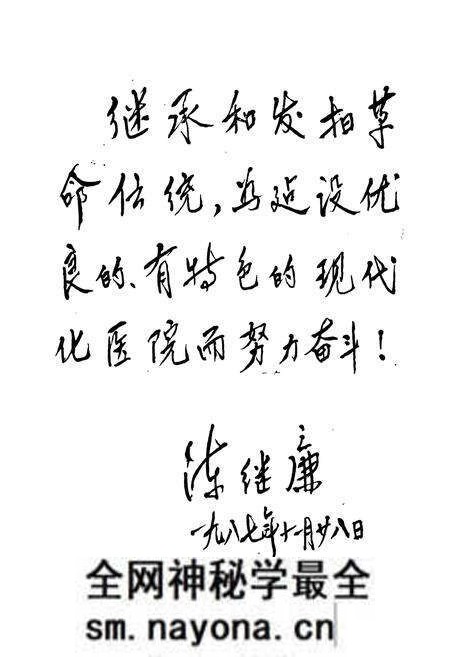 继承和发扬革
命传统，为建设优
良的、有特色的现代
化医院而努力奋斗！
陈继廉
一九八七年十一月廿八日
全网神秘学最全
sm.nayona.cn